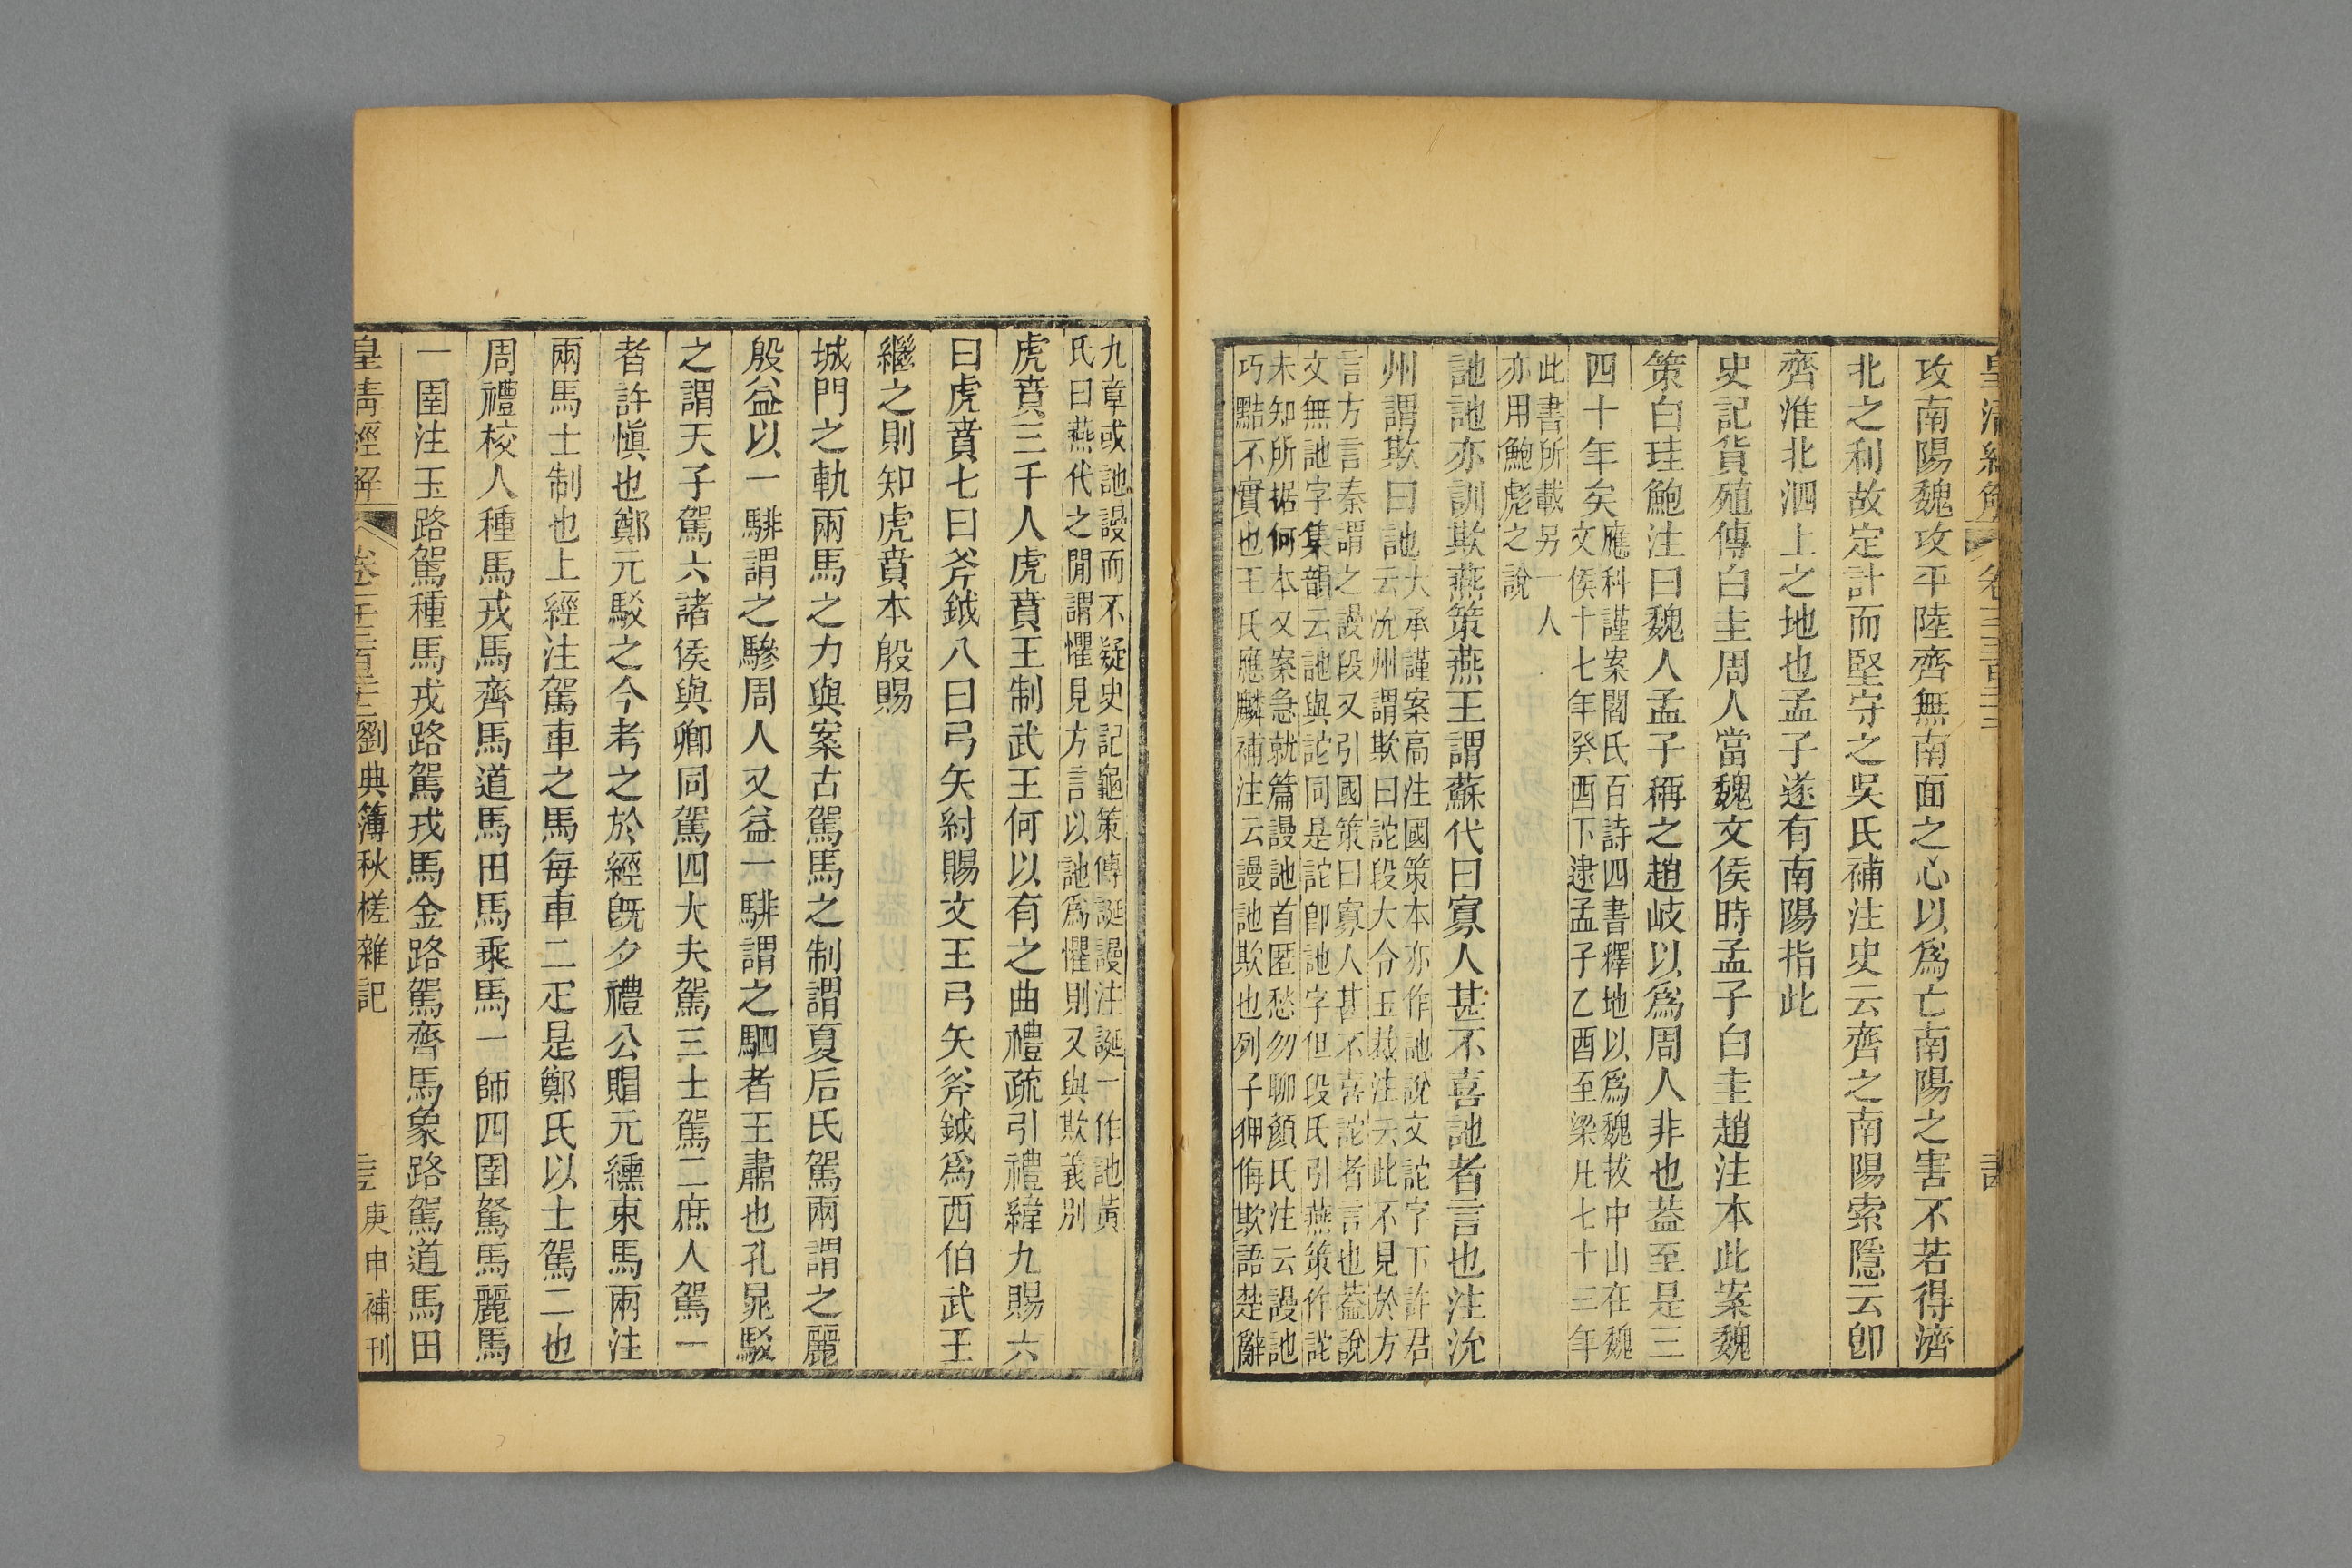 皇清經解
攻南陽魏攻平陸齊無南面之心以爲亡南陽之害不若得濟
北之利故定計而堅守之吳氏補注史云齊之南陽索隱云卽
齊淮北泗上之地也孟子遂有南陽指此
史記貨殖傳白圭周人當魏文侯時孟子白圭趙注本此案魏
策白珪鮑注曰魏人孟子稱之趙岐以爲周人非也葢至是三
四十年矣
應科謹案閻氏百詩四書釋地以爲魏拔中山在魏
文侯十七年癸酉下逮孟子乙酉至梁凡七十三年
此書所載另一人
亦用鮑彪之說
訑訑亦訓欺燕策燕王謂蘇代曰寡人甚不喜訑者言也注沇
州謂欺曰訑
大承謹案高注國策本亦作訑說文詑字下許君
云沇州謂欺曰詑段大令玉裁注云此不見於方
言方言秦謂之謾段又引國策曰寡人甚不喜詑者言也葢說
文無訑字集韻云訑與詑同是詑卽訑字但段氏引燕策作詑
未知所据何本又案急就篇謾訑首匿愁勿聊顏氏注云謾訑
巧黠不實也王氏應麟補注云謾訑欺也列子狎侮欺語楚辭
九章或訑謾而不疑史記龜策傳誕謾注誕一作訑黃
氏曰燕代之閒謂懼見方言以訑爲懼則又與欺義別
虎賁三千人虎賁王制武王何以有之曲禮疏引禮緯九賜六
曰虎賁七曰斧鉞八曰弓矢紂賜文王弓矢斧鉞爲西伯武王
繼之則知虎賁本殷賜
城門之軌兩馬之力與案古駕馬之制謂夏后氏駕兩謂之麗
殷益以一騑謂之驂周人又益一騑謂之駟者王肅也孔晁駁
之謂天子駕六諸侯與卿同駕四大夫駕三士駕二庶人駕一
者許愼也鄭元駁之今考之於經旣夕禮公賵元纁束馬兩注
兩馬士制也上經注駕車之馬每車二疋是鄭氏以士駕二也
周禮校人種馬戎馬齊馬道馬田馬乘馬一師四圉駑馬麗馬
一圉注玉路駕種馬戎路駕戎馬金路駕齊馬象路駕道馬田
皇清經解 劉典簿秋槎雜記 庚申補刊